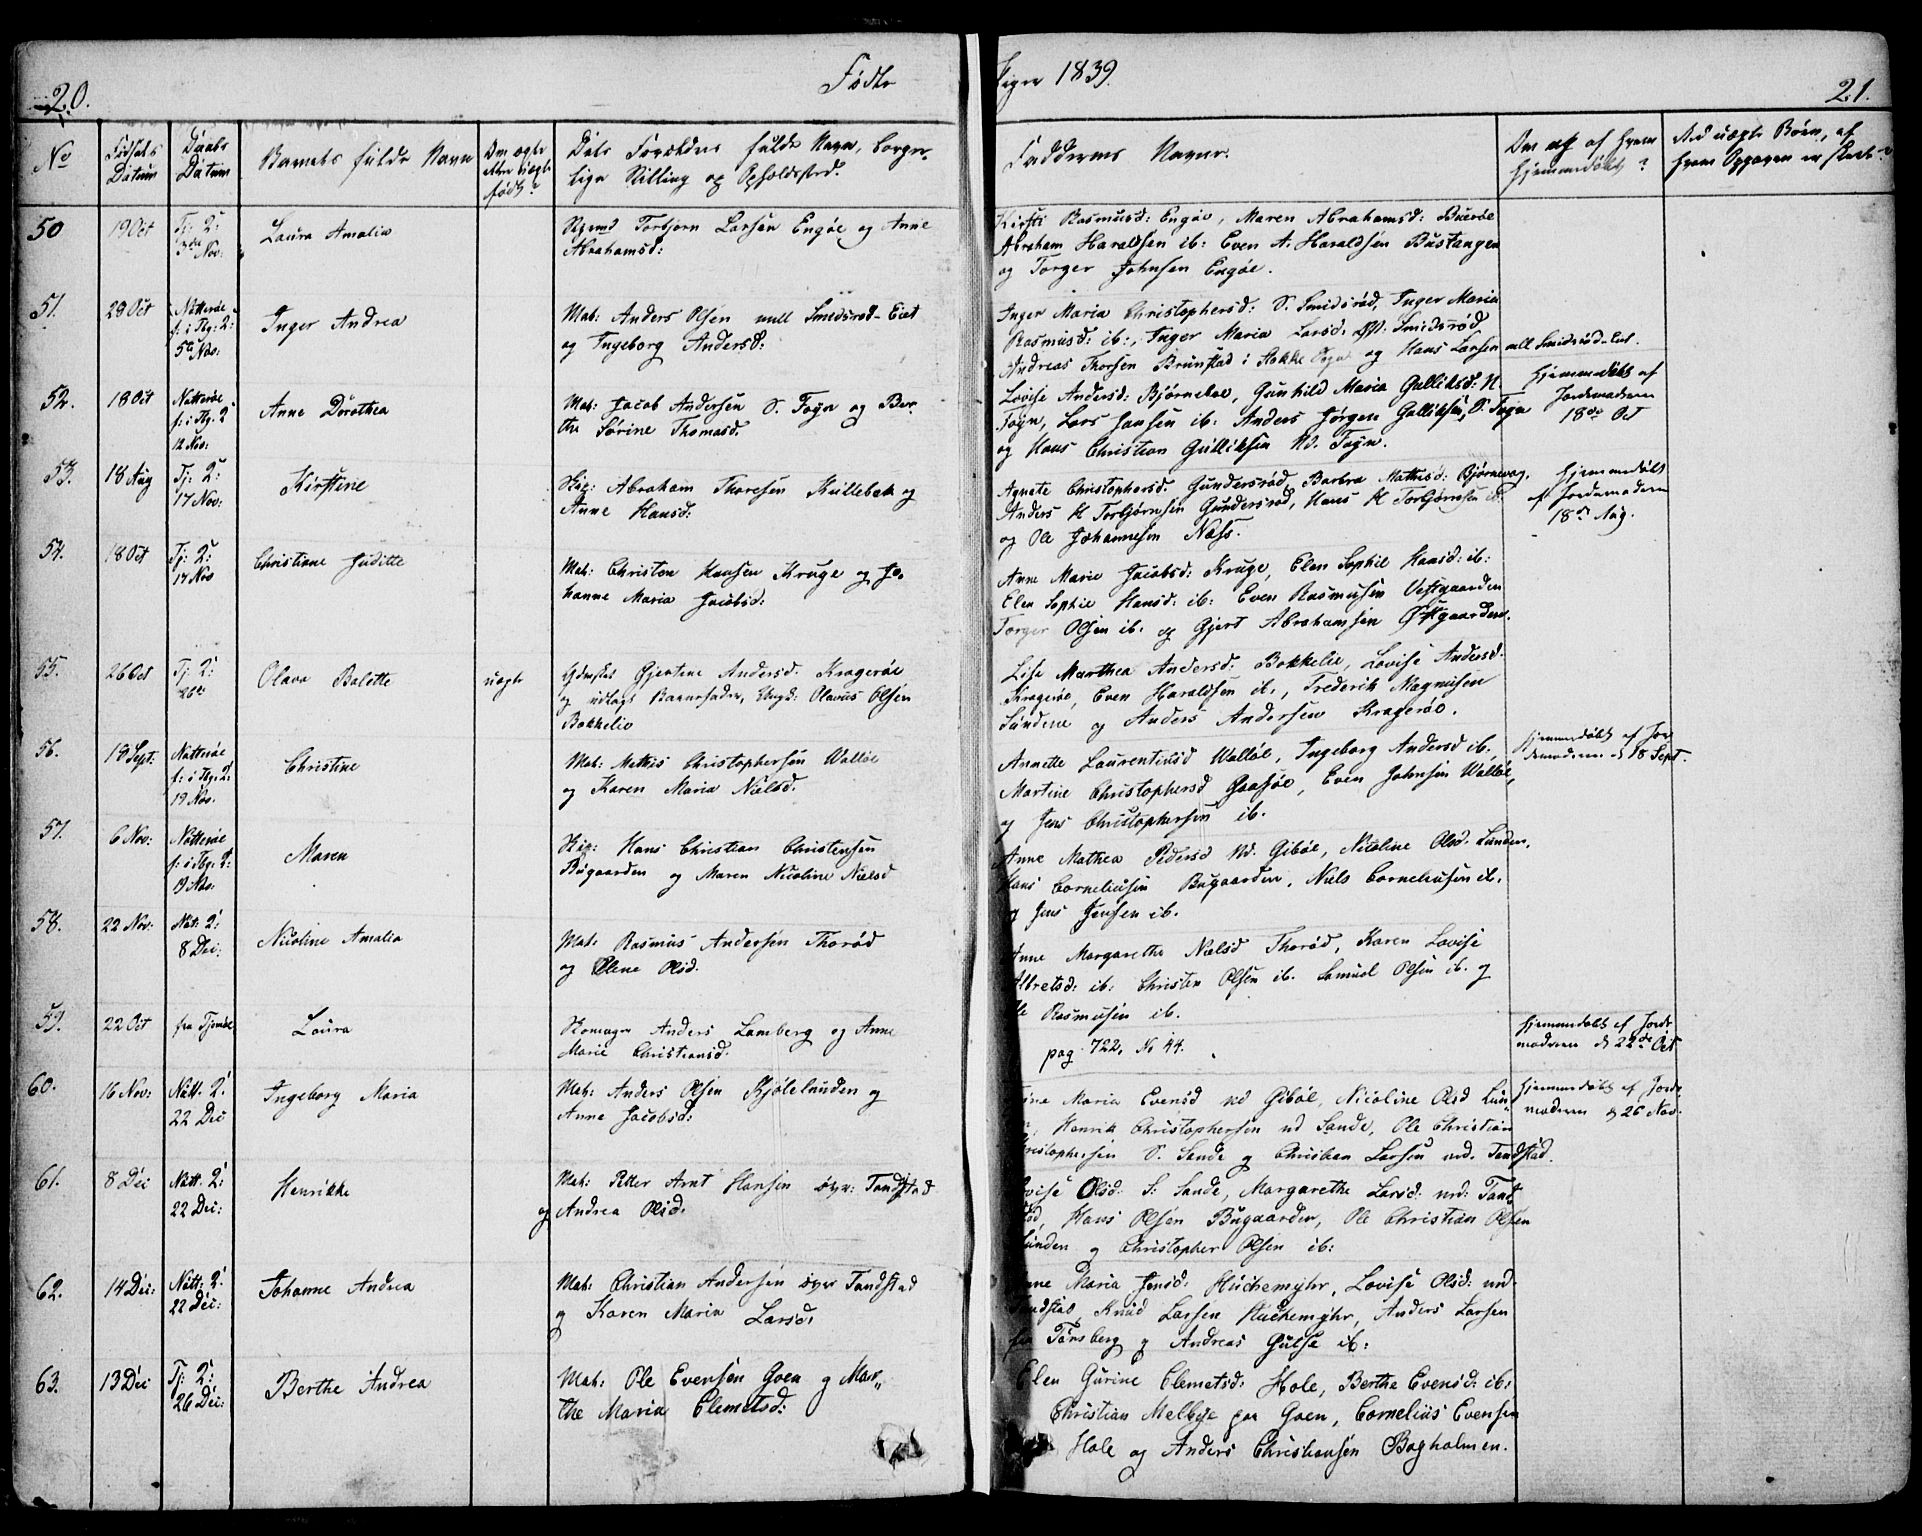 20.
Fødte
Piger 1839.
21.
No
Fødsels Datum
Daabs Datum
Barnets fulde Navn
Om ægte eller uægte født?
Dets Forældres fulde Navn, borger-
lige Stilling og Opholdsted.
Faddernes Navne.
Om og af hvem hjemmedøbt?
Ved uægte Børn, af hvem Opgaven er skeet?
50
19 Oct
Tj: 2:
3die Nov:
Laura Amalia
Torbjørn Larsen Engøe og Anne
Abrahamsd:
Kirsti Rasmusd: Engøe, Maren Abrahamsd: Buerøe
Abraham Haraldsen ib: Even A. Haraldsen Bustangen
og Torger Johnsen Engøe.
51.
29 Oct
Nøtterøe
f: i Tbg: 2:
5te Nov:
Inger Andrea
Mat: Anders Olsen mell Smidsrød Eiet
og Ingeborg Andersd:
Inger Maria Christophersd: S. Smidsrød, Inger Maria
Rasmusd: ib:, Inger Maria Larsd. M: Smidsrød
Andreas Thorsen Brunstad i Stokke Sogn og Hans Larsen mell Smidsrød Eiet.
52.
18 Oct
Nøtterøe
f: i Tbg. 2
12 Nov:
Anne Dorothea
Mat: Jacob Andersen S. Føyn og Ber-
the Sørine Thomasd.
Lovise Andersd: Bjørneboe, Gunhild Maria Gulliksd: N.
Føyn, Lars Jansen ib: Anders Jørgen Gulliksen S. Føyn
og Hans Christian Gulliksen N. Føyn.
Hjemmedøbt af
Jordemoderen
18de Oct
53.
18 Aug
Tj: 2:
17 Nov:
Kirstine
Skip: Abraham Thoresen Killebak og
Anne Hansd:
Agnete Christophersd. Gundersrød, Barbra Mathisd: Bjørnevaag,
Anders H Torbjørnsen Gundersrød, Hans H Torbjørnsen ib:
og Ole Johannesen Næss.
hjemmedøbt
af Jordemoderen
18de Aug.
54.
18 Oct
Tj: 2:
17 Nov
Christine Juditte
Mat: Christen Hansen Kruge og Jo-
hanne Maria Jacobsd:
Anne Marie Jacobsd: Kruge, Elen Sophie Hansd: ib:
Elen Sophie Hansd: ib: Even Rasmusen Vestgaarden
Torger Olsen ib. og Gjert Abrahamsen Østgaarden.
55.
26 Oct
Tj: 2:
Olava Balette
uægte
Gjertine Andersd. Kragerøe
og udlagt Barnefader, Ungk: Olaves Olsen
Bokkelie
Lise Marthea Andersd: Bokkelie, Lovise Andersd:
Kragerøe, Even Haraldsen ib., Frederik Magnusen
Sundene og Anders Andersen Kragerøe.
56.
18 Sept:
Nøtterøe
f: i Tbg: 2:
19 Nov.
Christine
Mat: Mathis Christophersen Valløe
og Karen Maria Nielsd.
Annette Laurentiusd Valløe, Ingeborg Andersd ib:
Martine Christophersd Gaasøe, Even Johnsen Valløe,
og Jens Christophersen ib.
hjemmedøbt af Jor-
demoderen d 18 Sept.
57.
6 Nov:
Nøtterøe
f: i Tbg: 2:
19 Nov.
Maren
Skip: Hans Christian Christensen
Bugaarden og Maren Nicoline Nielsd
Anne Mathea Pedersd Nd. Gibøe, Nicoline Olsd. Lunden,
Hans Corneliusen Bugaarden, Niels Corneliusen ib.
og Jens Jensen ib.
58.
22 Nov:
Nøt: 2:
8 Dec:
Nicoline Amalia
Mat: Rasmus Andersen Thorød
og Elene Olsd.
Anne Margarethe Nielsd Thorød, Karen Lovise
Albretsd: ib: Christen Olsen ib. Samuel Olsen ib. og
Ole Rasmusen ib.
59.
22 Oct
fra Tjømøe
Laura
Skomager Anders Lamberg og Anne
Marie Christiansd.
pag. 722, No 44.
hjemmedøbt af Jorde
moderen d 22de Oct
60.
16 Nov:
Nøtt. 2:
22 Dec
Ingeborg Maria
Mat: Anders Olsen Kjølelunden og
Anne Jacobsd:
Maria Evensd nd Gibøe, Nicoline Olsd Lun-
Henrik Christophersen nd Sande, Ole Christian
Christophersen S. Sande og Christian Larsen nd. Tandstad.
hjemmedøbt af Jorde
moderen d 26 Nov.
61.
8 Dec
Nøtt. 2:
22 Dec:
Henrikke
Mat: Petter Arnt Hansen øvr: Tandstad
og Andrea Olsd.
Lovise Olsd: S: Sande, Margarethe Larsd: nd: Tand-
stad, Hans Olsen Bugaarden, Ole Christian Olsen
Lunden og Christopher Olsen ib:
62.
14 Dec:
Nøtt: 2:
22 Dec:
Johanne Andrea
Mat: Christian Andersen øvr Tandstad
og Karen Maria Larsd:
Anne Maria Jensd: Huchemyhr, Lovise Olsd: nd.
Tandstad, Knud Larsen Huchemyhr, Anders Larsen
fra Tønsberg og Andreas Gulse ib:
63.
13 Dec
Tj: 2:
26 Dec:
Berthe Andrea
Mat: Ole Evensen Goen og Mar-
the Maria Clemetsd:
Elen Gurine Clemetsd: Hole, Berthe Evensd: ib:
Christian Melbye paa Goen, Cornelius Evensen
Hole og Anders Christiansen Bogholmen.